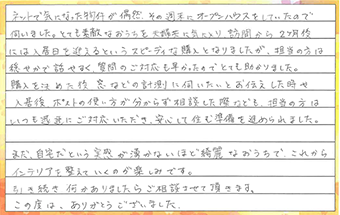 ネットで気になった物件が偶然、その週末にオープンハウスをしていたので
伺いました。とても素敵なおうちを夫婦共に気に入り、訪問から2ヶ月後
には入居日を迎えるというスピーディな購入となりましたが、担当の方は
穏やかで話しやすく、質問のご対応も早かったのでとても助かりました。
購入を決めた後、窓などの計測に伺いたいとお伝えした時や
入居後、ポストの使い方が分からず相談した際なども、担当の方は
いつも迅速にご対応いただき、安心して住む準備を進められました。
まだ、自宅だという実感が湧かないほど綺麗なおうちで、これから
インテリアを整えていくのが楽しみです。
引き続き何かありましたらご相談させて頂きます。
この度は、ありがとうございました。